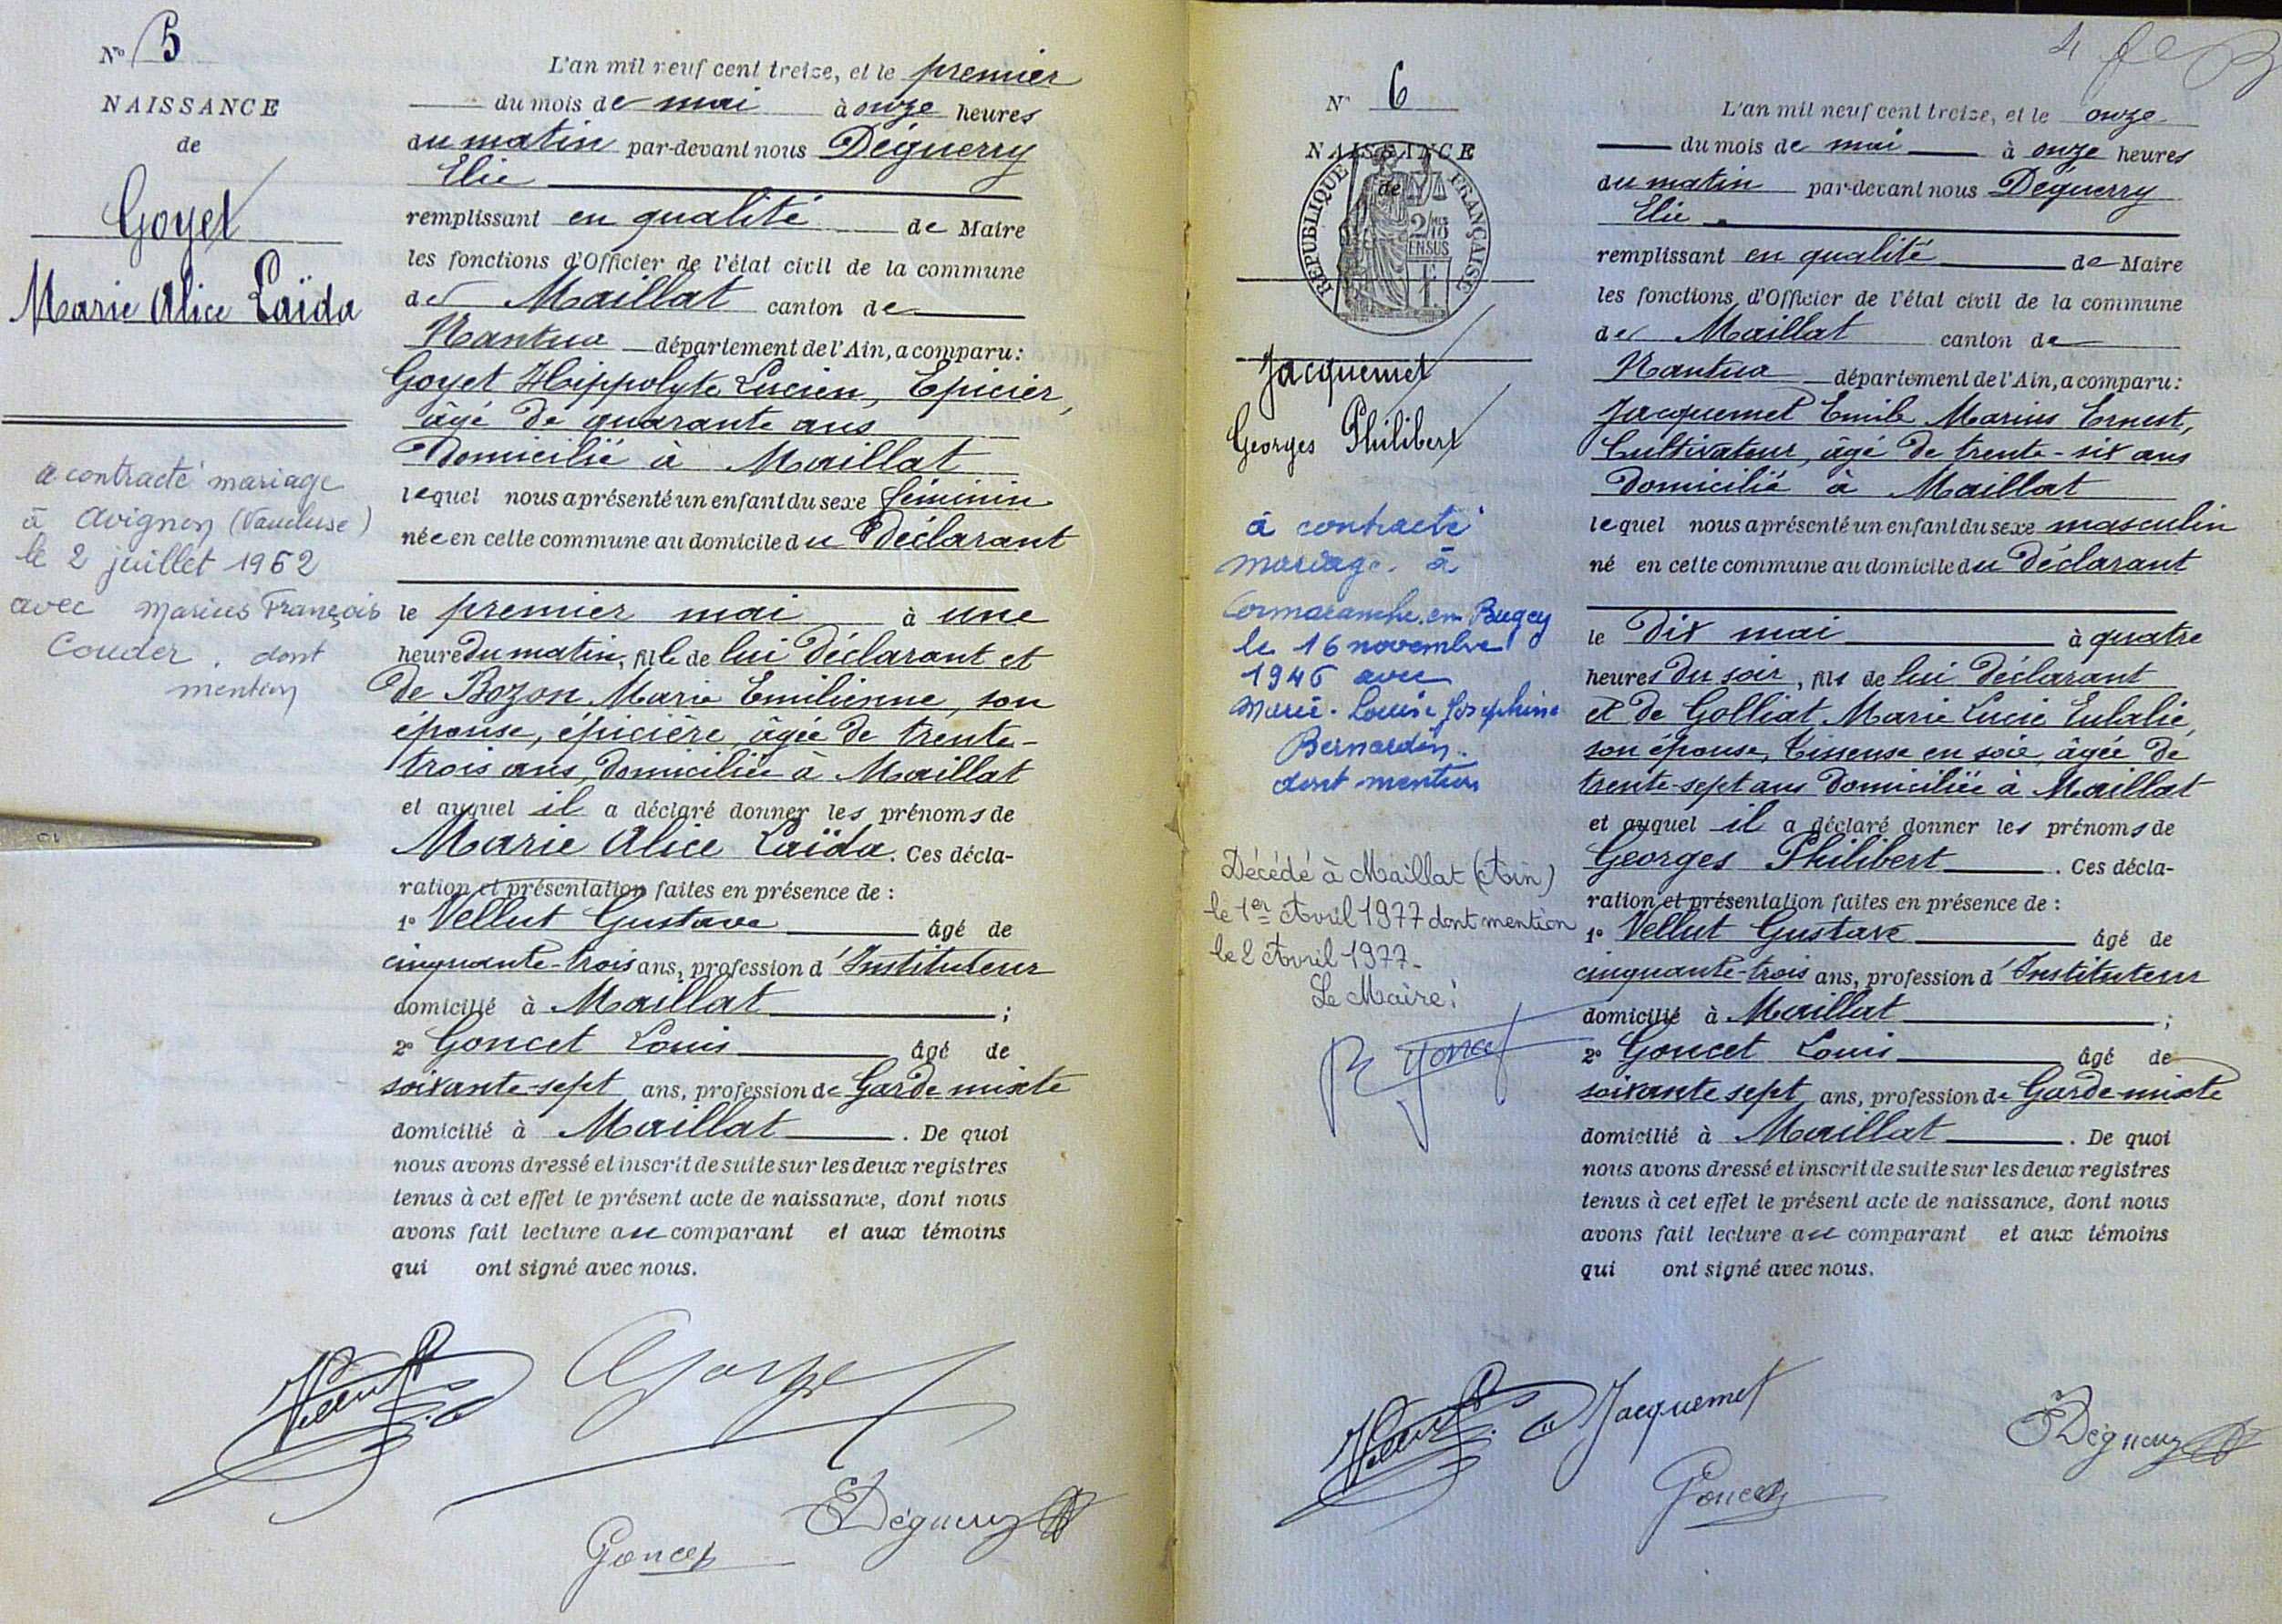 N° 5
NAISSANCE
de
Goyet
Marie Alice Laïda
a contracté mariage
à Avignon (Vaucluse)
le 2 juillet 1962
avec Marius François
Couder. dont
mention
L'an mil neuf cent treize, et le premier
du mois de mai à onze heures
du matin par-devant nous Déguerry
Elie
remplissant en qualité de Maire
les fonctions d'Officier de l'état civil de la commune
de Maillat canton de
Nantua département de l'Ain, a comparu :
Goyet Hippolyte Lucien, Epicier,
âgé de quarante ans
domicilié à Maillat
lequel nous a présenté un enfant du sexe féminin
née en cette commune au domicile du déclarant
le premier mai à une
heure du matin, fille de lui déclarant et
de Bozon Marie Emilienne, son
épouse, épicière âgée de trente-
trois ans, domiciliée à Maillat
et auquel il a déclaré donner les prénoms de
Marie Alice Laïda. Ces décla-
ration et présentation faites en présence de :
1° Vellut Gustave âgé de
cinquante-trois ans, profession d'Instituteur
domicilié à Maillat ;
2° Goncet Louis âgé de
soixante-sept ans, profession de Garde mixte
domicilié à Maillat . De quoi
nous avons dressé et inscrit de suite sur les deux registres
tenus à cet effet le présent acte de naissance, dont nous
avons fait lecture au comparant et aux témoins
qui ont signé avec nous.
Vellut
Goyet
EDéguerry
Goncet
N° 6
NAISSANCE
de
RÉPUBLIQUE FRANÇAISE
2/10 EN SUS
Jacquemet
Georges Philibert
à contracté
mariage à
Cormaranche en Bugey
le 16 novembre
1946 avec
Marie-Louise Josephine
Bernardin.
dont mention
Décédé à Maillat (Ain)
le 1er Avril 1977 dont mention
le 2 Avril 1977.
Le Maire :
R Goncet
L'an mil neuf cent treize, et le onze
du mois de mai à onze heures
du matin par-devant nous Déguerry
Elie
remplissant en qualité de Maire
les fonctions d'Officier de l'état civil de la commune
de Maillat canton de
Nantua département de l'Ain, a comparu :
Jacquemet Emile Marius Ernest,
Cultivateur, âgé de trente-six ans
domicilié à Maillat
lequel nous a présenté un enfant du sexe masculin
né en cette commune au domicile du déclarant
le dix mai à quatre
heures du soir, fils de lui déclarant
et de Golliat Marie Lucie Eulalie,
son épouse, Tisseuse en soie, âgée de
trente-sept ans domiciliée à Maillat
et auquel il a déclaré donner les prénoms de
Georges Philibert . Ces décla-
ration et présentation faites en présence de :
1° Vellut Gustave âgé de
cinquante-trois ans, profession d'Instituteur
domicilié à Maillat ;
2° Goncet Louis âgé de
soixante sept ans, profession de Garde-mixte
domicilié à Maillat . De quoi
nous avons dressé et inscrit de suite sur les deux registres
tenus à cet effet le présent acte de naissance, dont nous
avons fait lecture au comparant et aux témoins
qui ont signé avec nous.
Vellut
Jacquemet
EDéguerry
Goncet